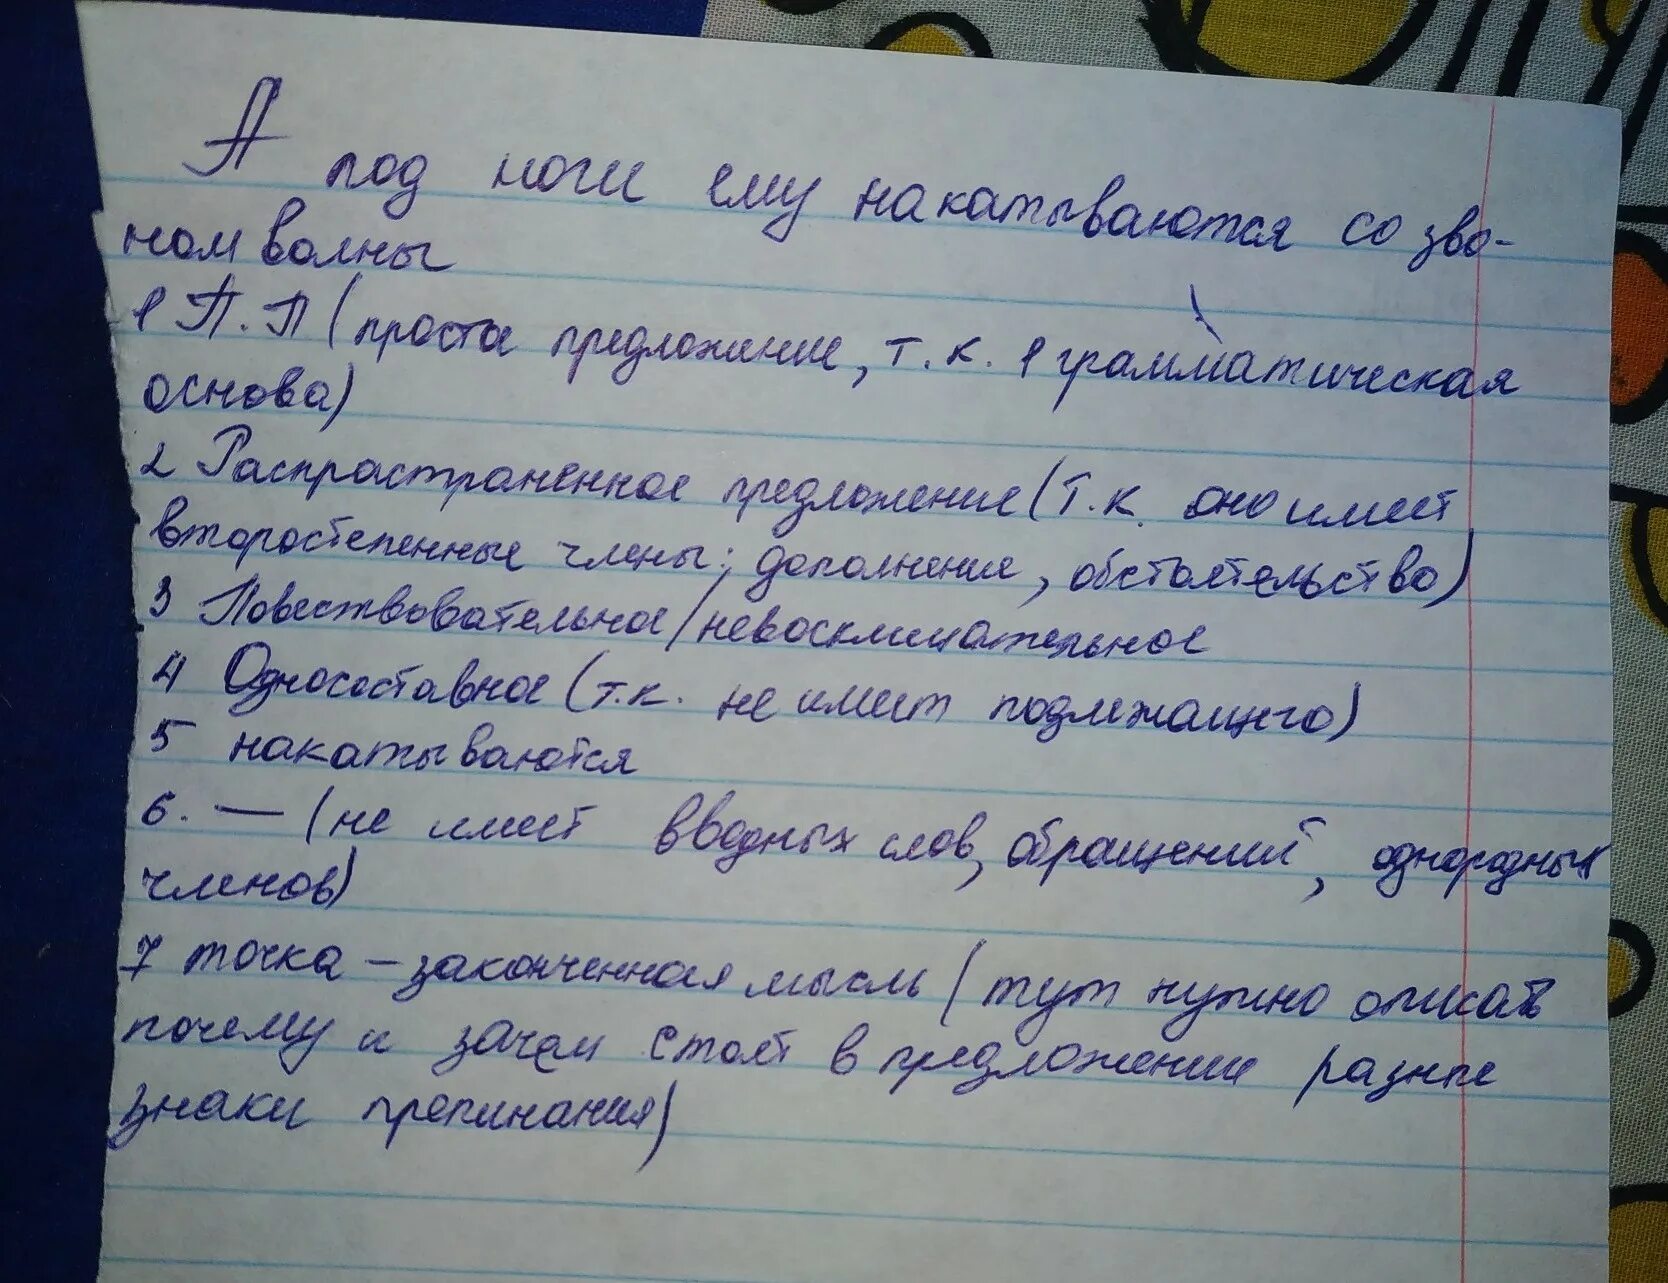 А под ноги ему накатываются со зво-
ном волны
1 П.П (проста предложение, т.к. 1 грамматическая
основа)
2 Распрастранённое предложение (т.к. оно имеет
второстепенные члены: дополнение, обстоятельство)
3 Повествовательное/невосклицательное
4 Односоставное (т.к. не имеет подлежащего)
5 накатываются
6. — (не имеет вводных слов, обращений, однородных
членов)
7 точка – законченная мысль (тут нужно описать
почему и зачем стоят в предложении разные
знаки препинания)